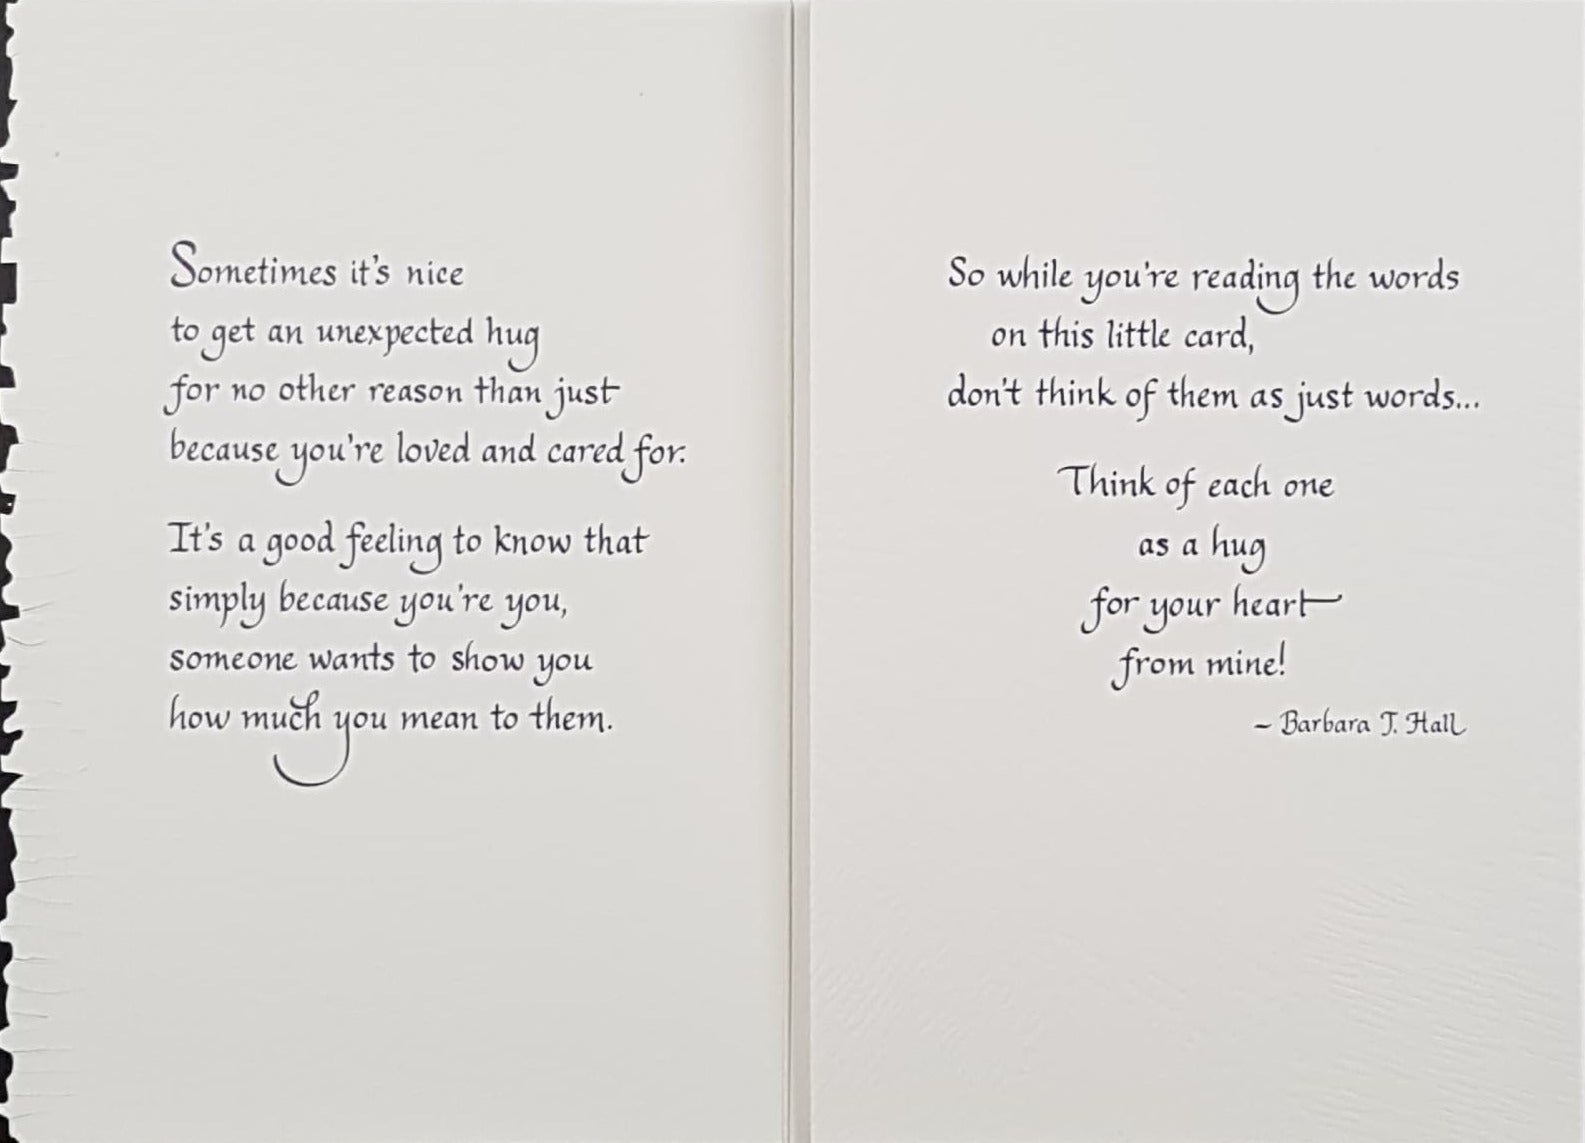 Sometimes it's nice
to get an unexpected hug
for no other reason than just
because you're loved and cared for.
It's a good feeling to know that
simply because you're you,
someone wants to show you
how much you mean to them.
So while you're reading the words
on this little card,
don't think of them as just words...
Think of each one
as a hug
for your heart
from mine!
~ Barbara J. Hall